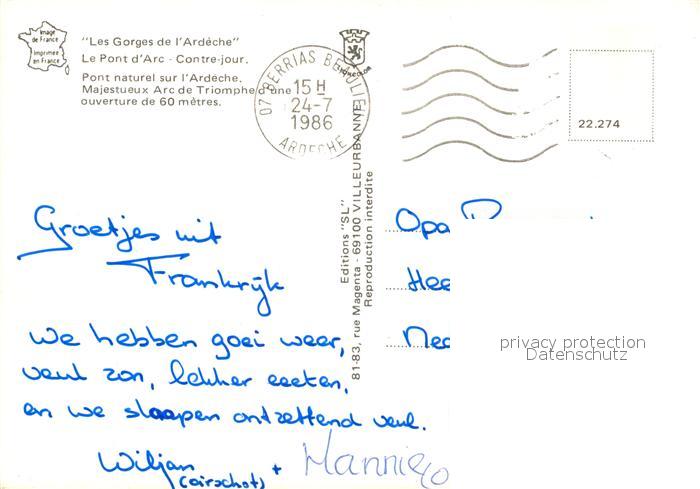 Image
de France
Imprimée
en France
"Les Gorges de l'Ardèche"
Le Pont d'Arc - Contre-jour.
Pont naturel sur l'Ardèche.
Majestueux Arc de Triomphe d'une
ouverture de 60 mètres.
07 BERRIAS BEAULIEU
15 H
24-7
1986
ARDECHE
22.274
Editions "SL"
81-83, rue Magenta - 69100 VILLEURBANNE
Reproduction interdite
Groetjes uit
Frankrijk
We hebben goei weer,
veul zon, lekker eeeten,
en we slaapen ontzettend veul.
Wiljan + Mannie
(oirschot)
Opa
Hee
Ned
privacy protection
Datenschutz